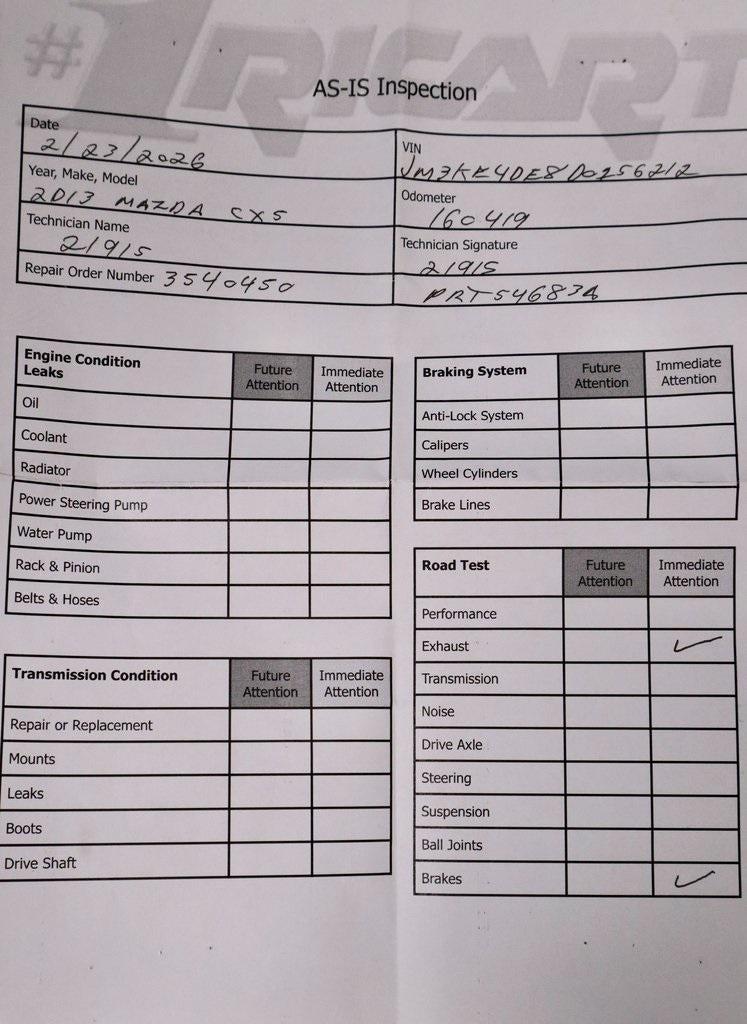 #1 RICART
AS-IS Inspection
Date
2/23/2026
Year, Make, Model
2013 MAZDA CX5
Technician Name
21915
Repair Order Number 3540450
VIN
JM3KE4DE8D0156212
Odometer
160419
Technician Signature
21915
PRT546834
Engine Condition
Leaks
Future
Attention
Immediate
Attention
Oil
Coolant
Radiator
Power Steering Pump
Water Pump
Rack & Pinion
Belts & Hoses
Braking System
Future
Attention
Immediate
Attention
Anti-Lock System
Calipers
Wheel Cylinders
Brake Lines
Transmission Condition
Future
Attention
Immediate
Attention
Repair or Replacement
Mounts
Leaks
Boots
Drive Shaft
Road Test
Future
Attention
Immediate
Attention
Performance
Exhaust ✓
Transmission
Noise
Drive Axle
Steering
Suspension
Ball Joints
Brakes ✓